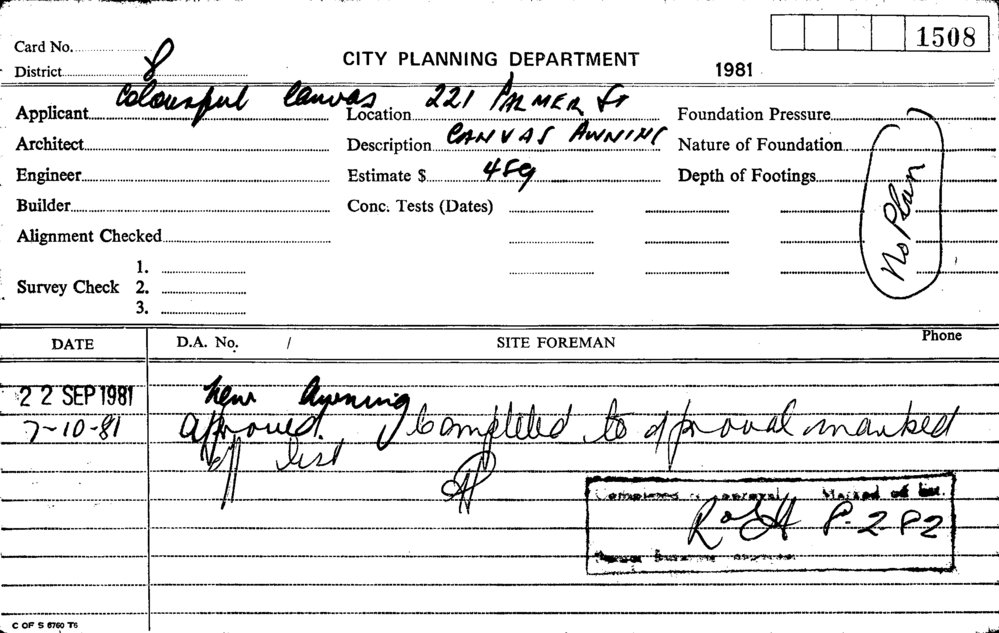 1508
Card No.
District 8
CITY PLANNING DEPARTMENT
1981
Applicant Colourful Canvas
Location 221 PALMER St
Foundation Pressure
Architect
Description CANVAS AWNING
Nature of Foundation
Engineer
Estimate $ 459
Depth of Footings
No Plan
Builder
Conc. Tests (Dates)
Alignment Checked
Survey Check
1.
2.
3.
DATE D.A. No. / SITE FOREMAN Phone
22 SEP 1981 New Awning
7-10-81 approved. Completed to approval marked
off list
Completed to approval. Marked off list.
8.2.82
C OF S 6760 T6